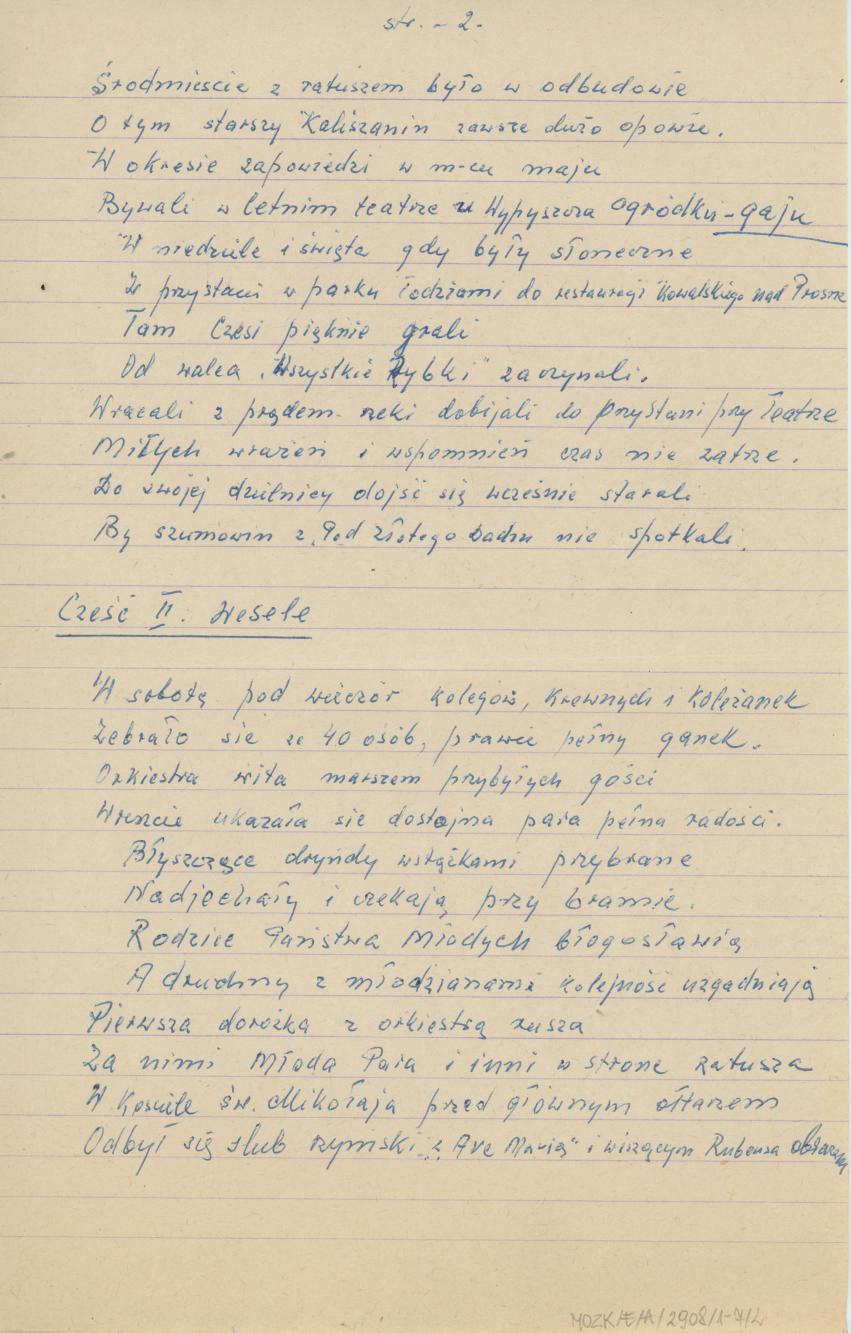 str. - 2 -
Środmieście z ratuszem było w odbudowie
O tym starszy Kaliszanin zawsze dużo opowie.
W okresie zapowiedzi w m-cu maju
Bywali w letnim teatrze u Wypyszcza ogródku - gaju
W niedziele i święta gdy były słoneczne
Z przystani w parku łodziami do restauracji Kowalskiego nad Prosnę
Tam Czesi pięknie grali
Od walca „Wszystkie Rybki" zaczynali.
Wracali z prądem rzeki dobijali do przystani przy Teatrze
Miłych wrażeń i wspomnień czas nie zatrze.
Do swojej dzielnicy dojść się wcześnie starali
By szumowin z „Pod Złotego

 nie spotkali.
Cześć II. Wesele
W sobotę pod wieczór kolegów, krewnych i koleżanek
Zebrało sie ze 40 osób, prawie pełny ganek.
Orkiestra wita marszem przybyłych gości
Wreszcie ukazała sie dostojna para pełna radości.
Błyszczące dryndy wstążkami przybrane
Nadjechały i czekają przy bramie.
Rodzice Państwa Młodych błogosławią
A druchny z młodzianami kolejność uzgadniają
Pierwsza dorożka z orkiestrą rusza
Za nimi Młoda Para i inni w strone ratusza
W Kościele św. Mikołaja przed głównym ołtarzem
Odbył się slub rzymski z „Ave Marią" i wiszącym Rubensa obrazem
MOZK/E/A/2908/1-7/2